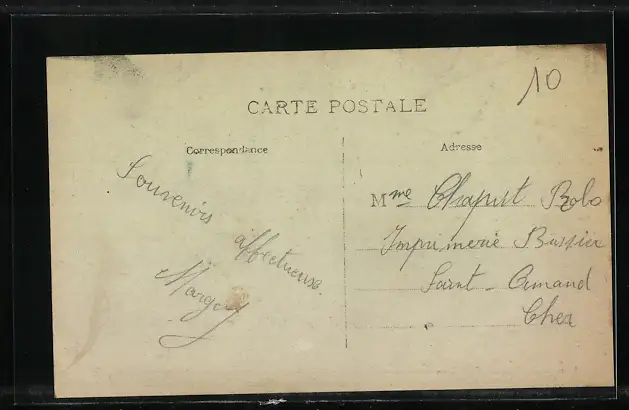 10
CARTE POSTALE
Correspondance
Adresse
Souvenirs
affectueux.
Margot
Mme Chapit Bolo
Imprimerie Bussier
Saint-Amand
Cher